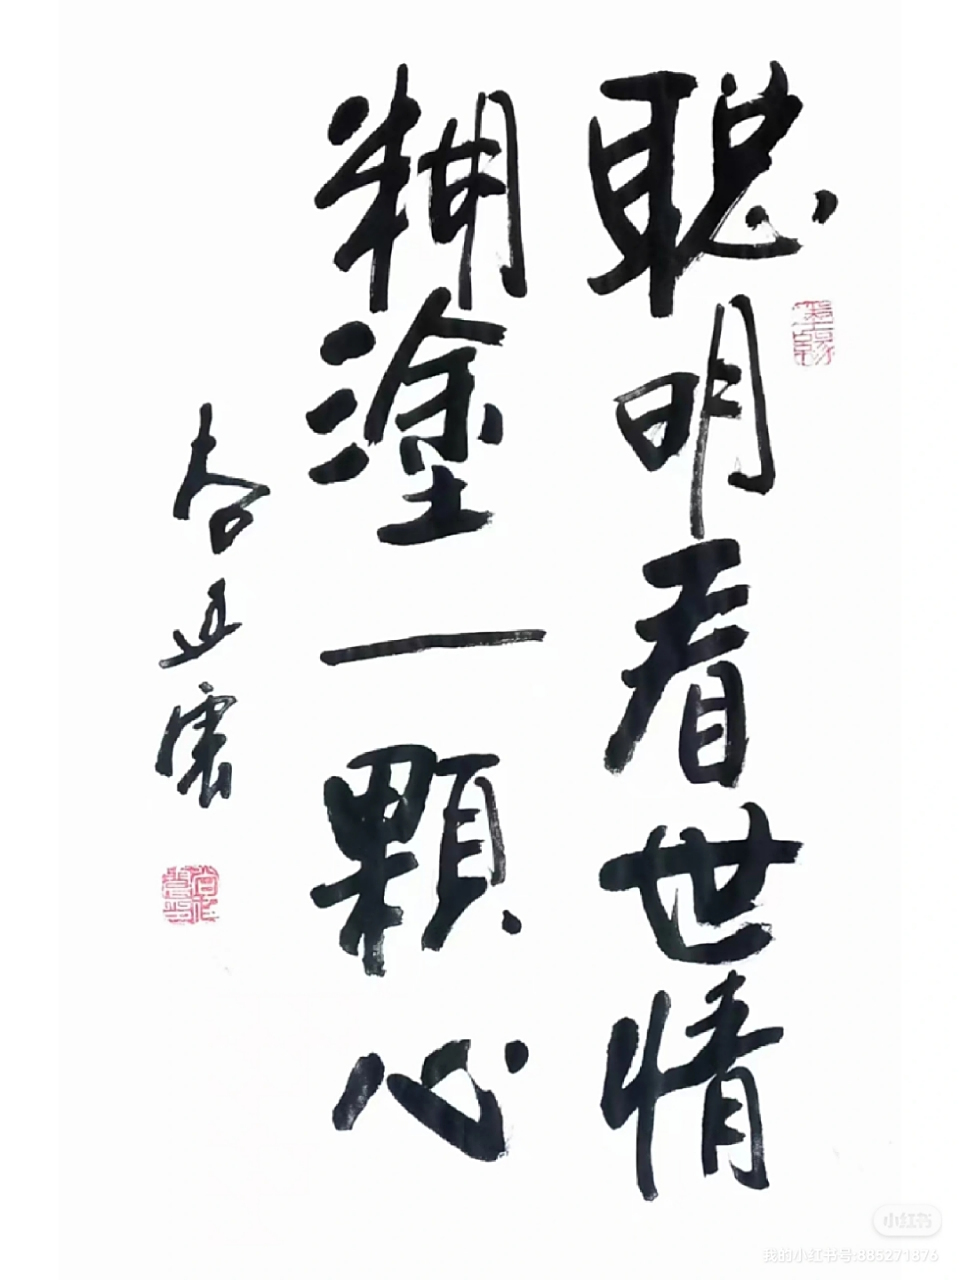 聪明看世情
糊塗一顆心
小红书
我的小红书号:885271876